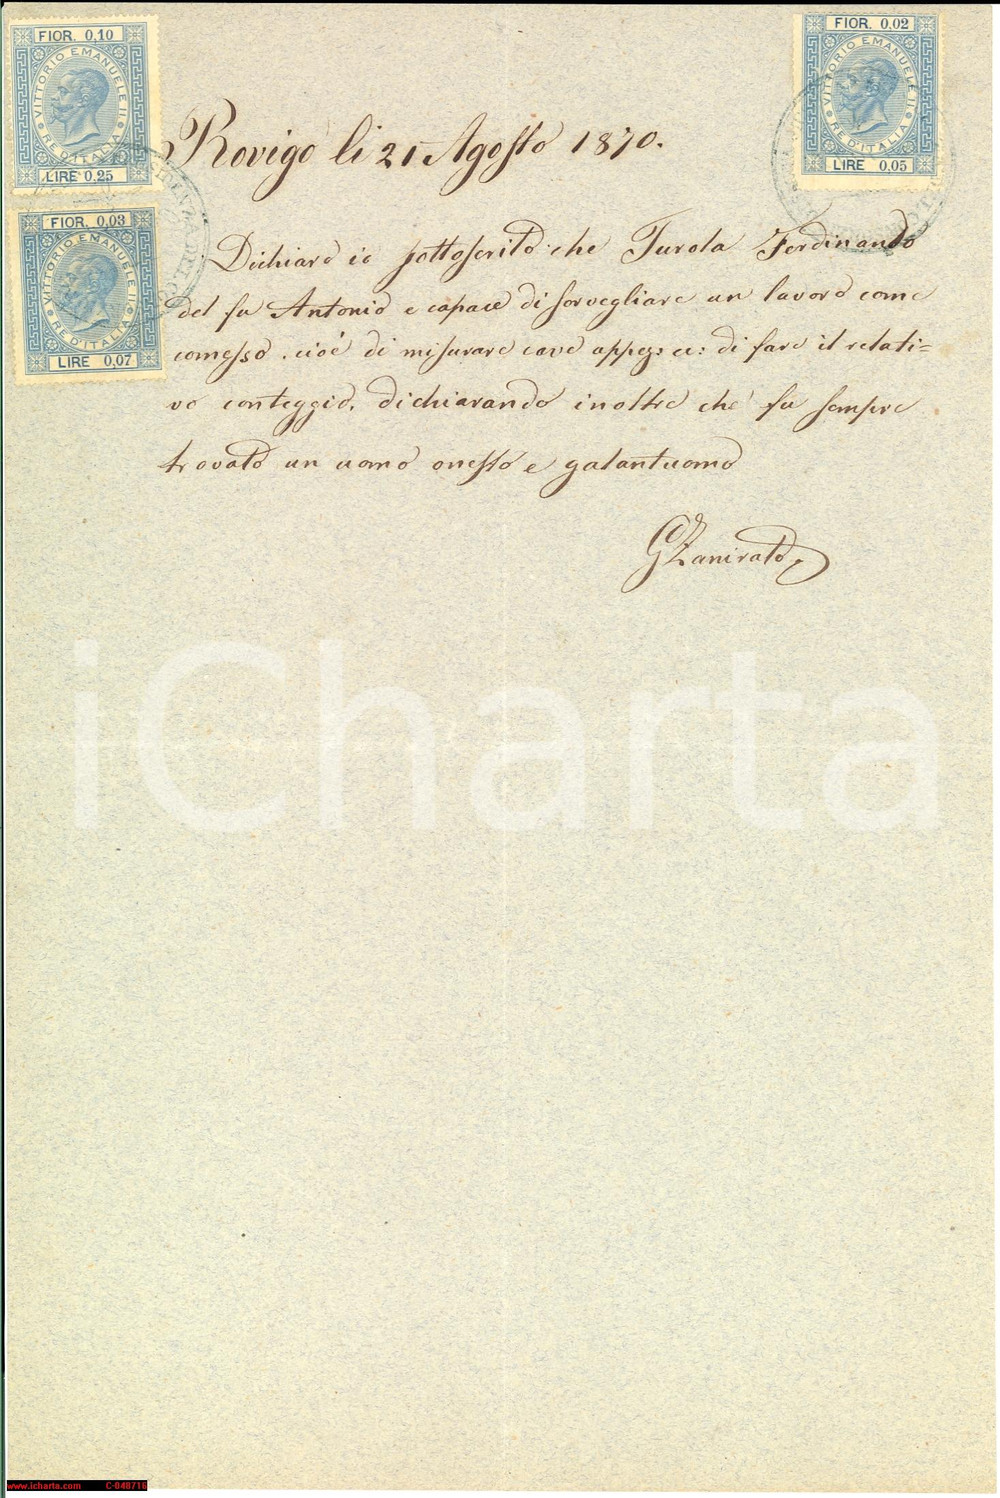 FIOR. 0,10
VITTORIO EMANUELE II
RE D'ITALIA
LIRE 0,25
FIOR. 0,02
VITTORIO EMANUELE II
RE D'ITALIA
LIRE 0,05
FIOR. 0,03
VITTORIO EMANUELE II
RE D'ITALIA
LIRE 0,07
Rovigo li 21 Agosto 1870.
Dichiaro io sottoscrito che Turola Ferdinando
del fu Antonio e capace di sorvegliare un lavoro come
comesso. cioè di misurare cave appez: ec: di fare il relati=
vo conteggio, dichiarando inoltre che fu sempre
trovato un uomo onesto e galantuomo
G Zanirato
iCharta
www.icharta.com C-040716